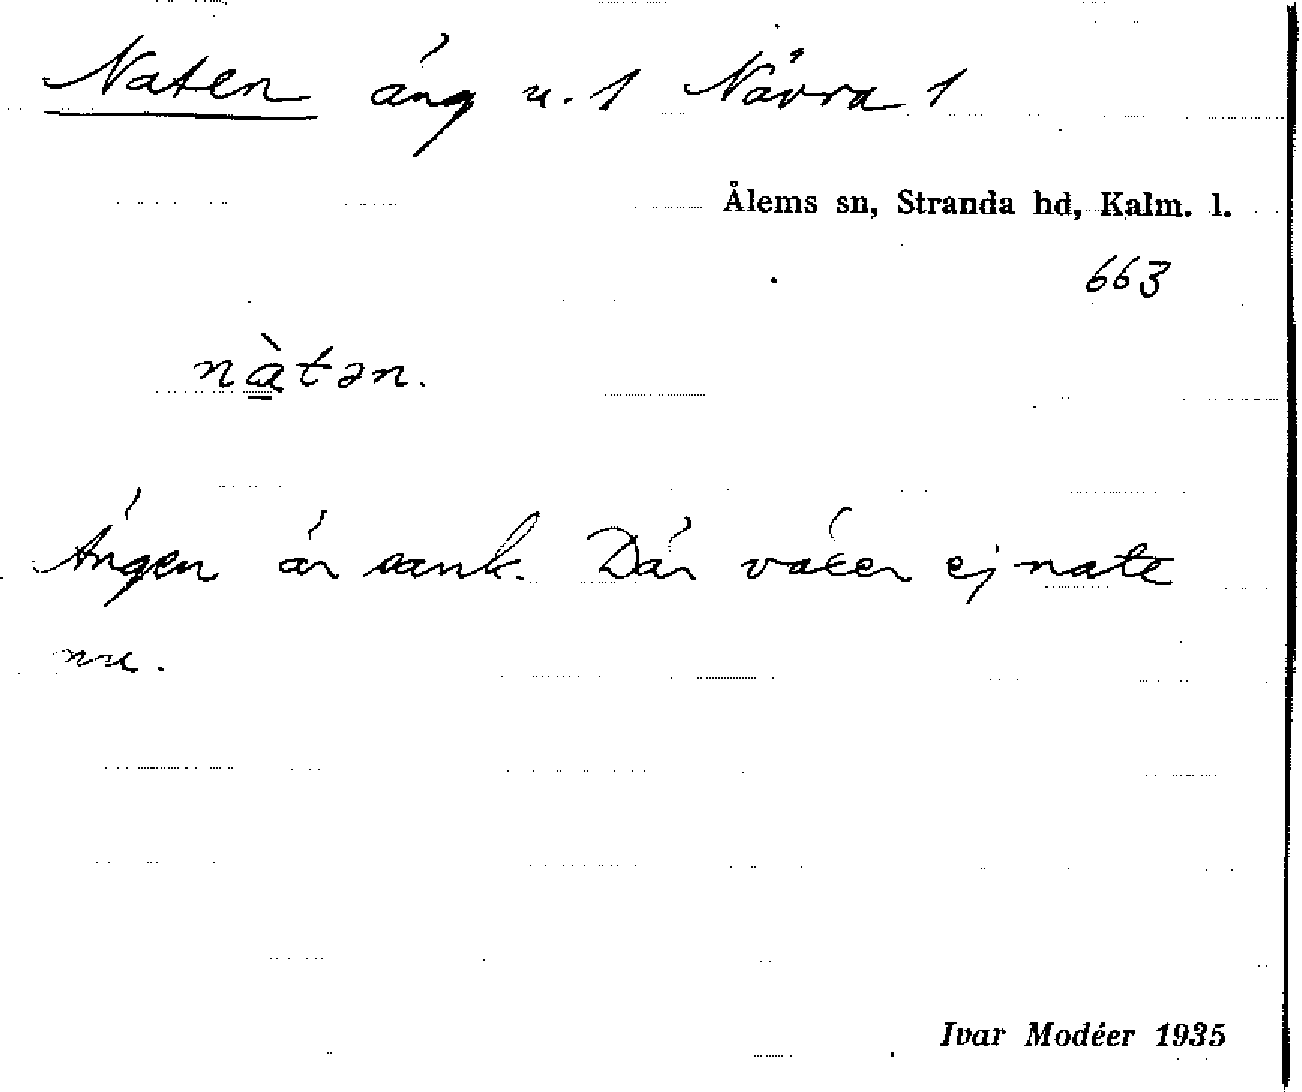 Naten äng u. 1 Nävra 1
Ålems sn, Stranda hd, Kalm. l.
663
nà̱tən.
Ängen är sank. Där växer ej nate
nu.
Ivar Modéer 1935